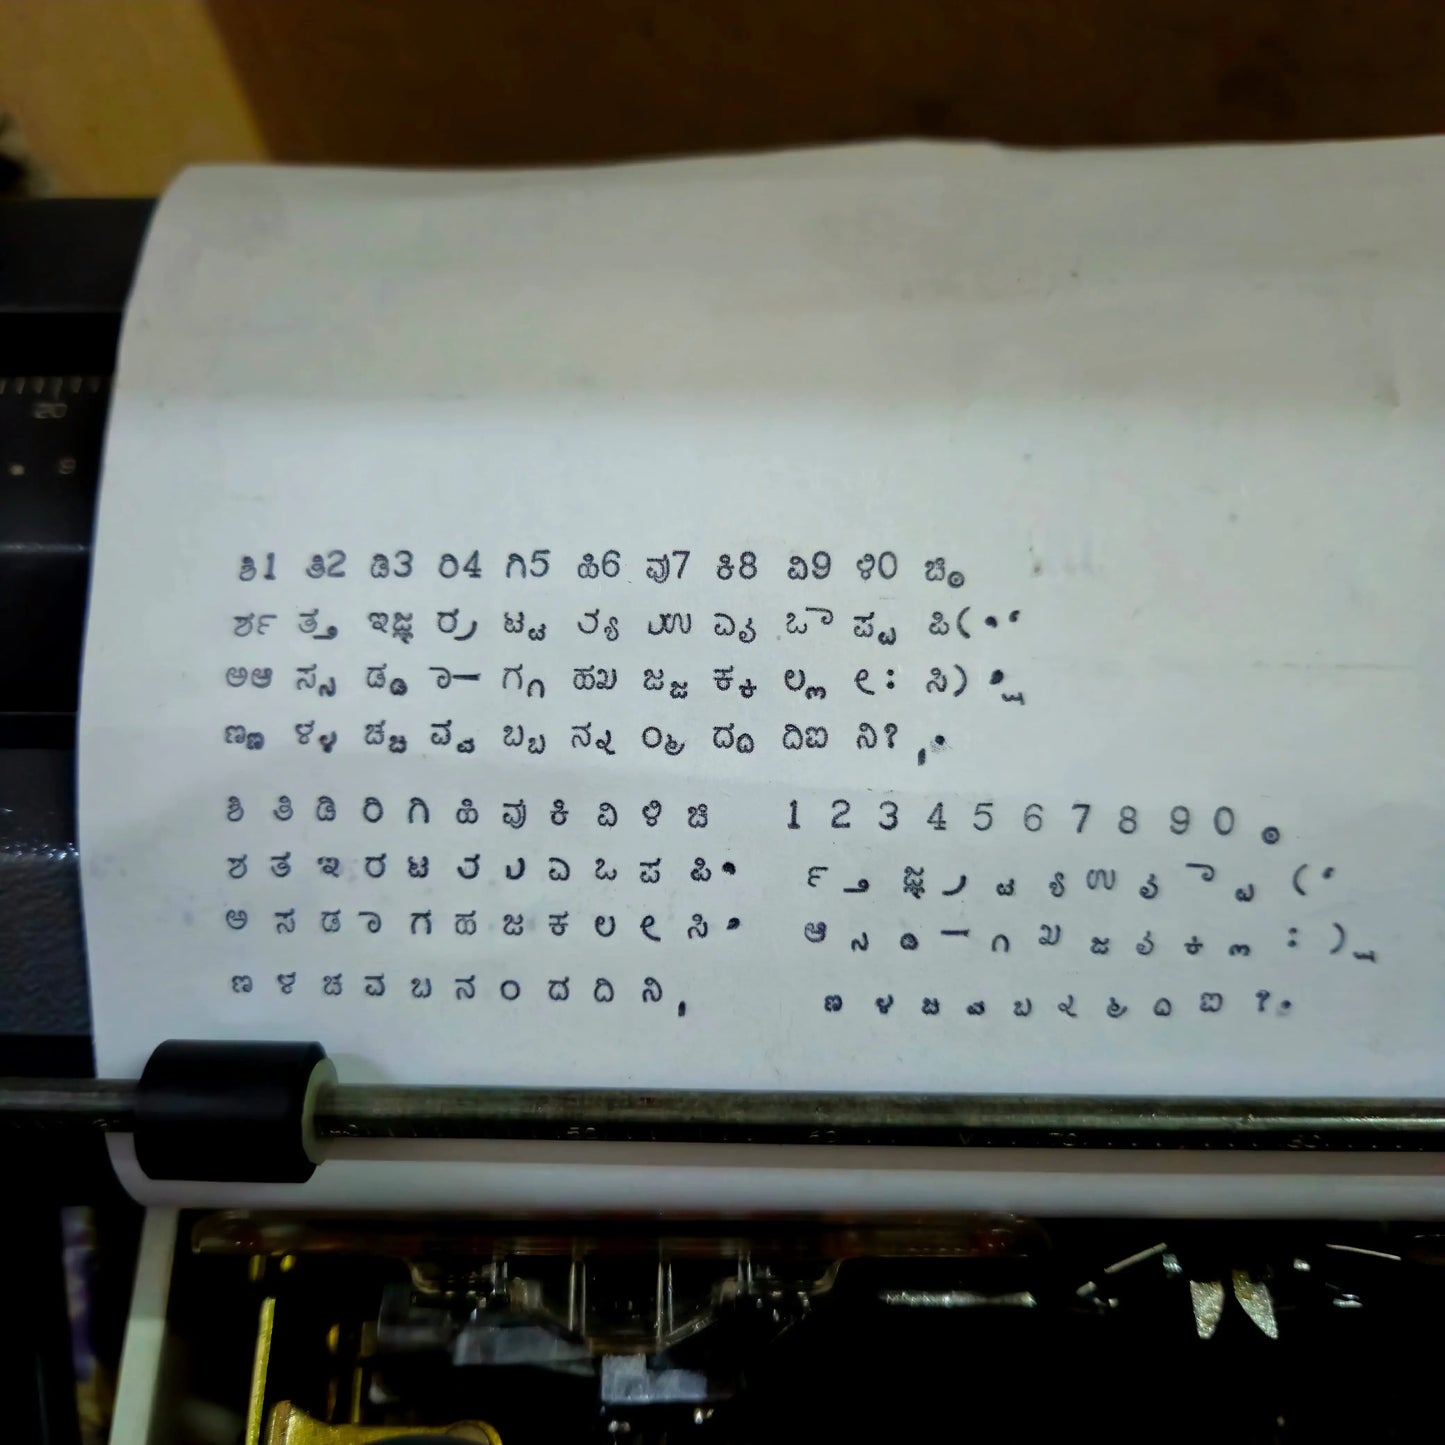 ಶಿ1 ತಿ2 ಡಿ3 ರಿ4 ಗಿ5 ಹಿ6 ವು7 ಕಿ8 ವಿ9 ಳಿ0 ಚಿ
ಶರ್ ತ್ತ ಇಜ್ಞ ರ್ರ ಟ್ಟ ಒ ಾ ಪ್ಪ ಪಿ(
ಅಆ ಸ್ಸ ಡ್ಡ ಾ- ಗ್ಗ ಹಖ ಜ್ಜ ಕ್ಕ ಲ್ಲ : ಸಿ)
ಣ್ಣ ಳ್ಳ ಚ್ಚ ವ್ವ ಬ್ಬ ನ್ನ ದ್ದ ದಿಐ ನಿ? ,.
ಶಿ ತಿ ಡಿ ರಿ ಗಿ ಹಿ ವು ಕಿ ವಿ ಳಿ ಚಿ 1 2 3 4 5 6 7 8 9 0
ಶ ತ ಇ ರ ಟ ಎ ಒ ಪ ಪಿ ರ್ ್ತ ಜ್ಞ ್ರ ್ಟ ್ಯ ಉ ಾ ್ಪ (
ಅ ಸ ಡ ಾ ಗ ಹ ಜ ಕ ಲ ೕ ಸಿ ಆ ್ಸ ್ಡ - ್ಗ ಖ ್ಜ ್ಕ ್ಲ : ) ್ಷ
ಣ ಳ ಚ ವ ಬ ನ ಂ ದ ದಿ ನಿ , ್ಣ ್ಳ ್ಚ ್ವ ್ಬ ್ನ ್ದ ಐ ? .